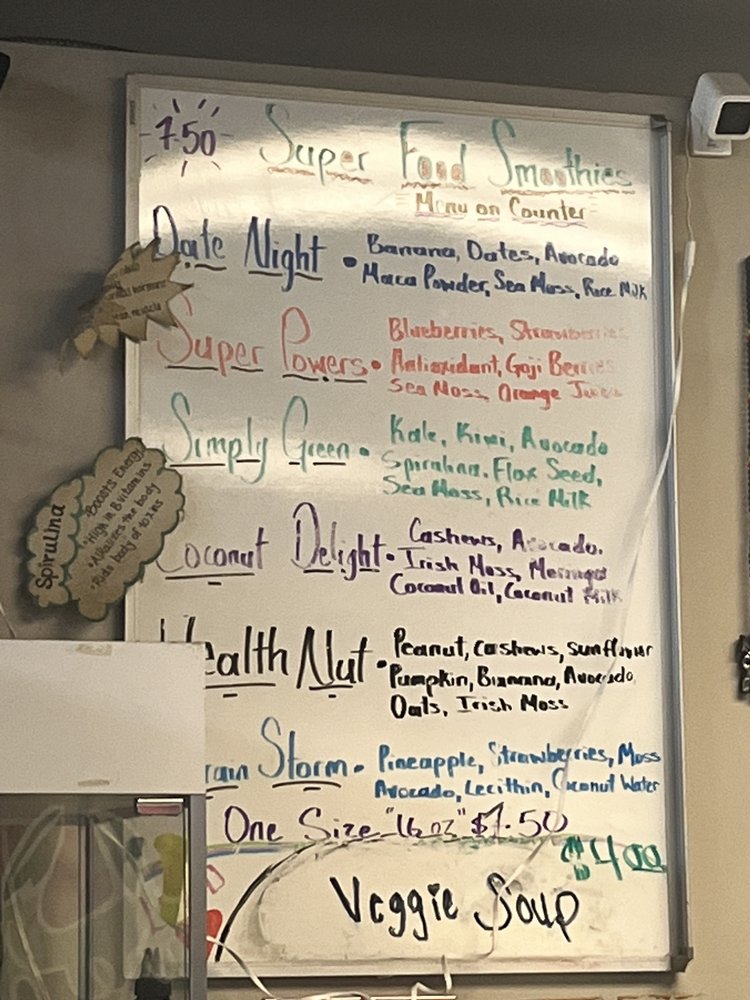 7.50
Super Food Smoothies
Menu on Counter
Date Night • Banana, Dates, Avocado
Maca Powder, Sea Moss, Rice Milk
Super Powers • Blueberries, Strawberries
Antioxidant, Goji Berries
Sea Moss, Orange Juice
Simply Green • Kale, Kiwi, Avocado
Spirulina, Flax Seed,
Sea Moss, Rice Milk
Coconut Delight • Cashews, Avocado,
Irish Moss,
Coconut Oil, Coconut Milk
Health Nut • Peanut, Cashews, Sunflower
Pumpkin, Banana, Avocado
Oats, Irish Moss
rain Storm • Pineapple, Strawberries, Moss
Avocado, Lecithin, Coconut Water
One Size "16 oz" $7.50
$400
Veggie Soup
Spirulina
•Boosts Energy
•High in B vitamins
•Alkalizes the body
•Rids body of toxins